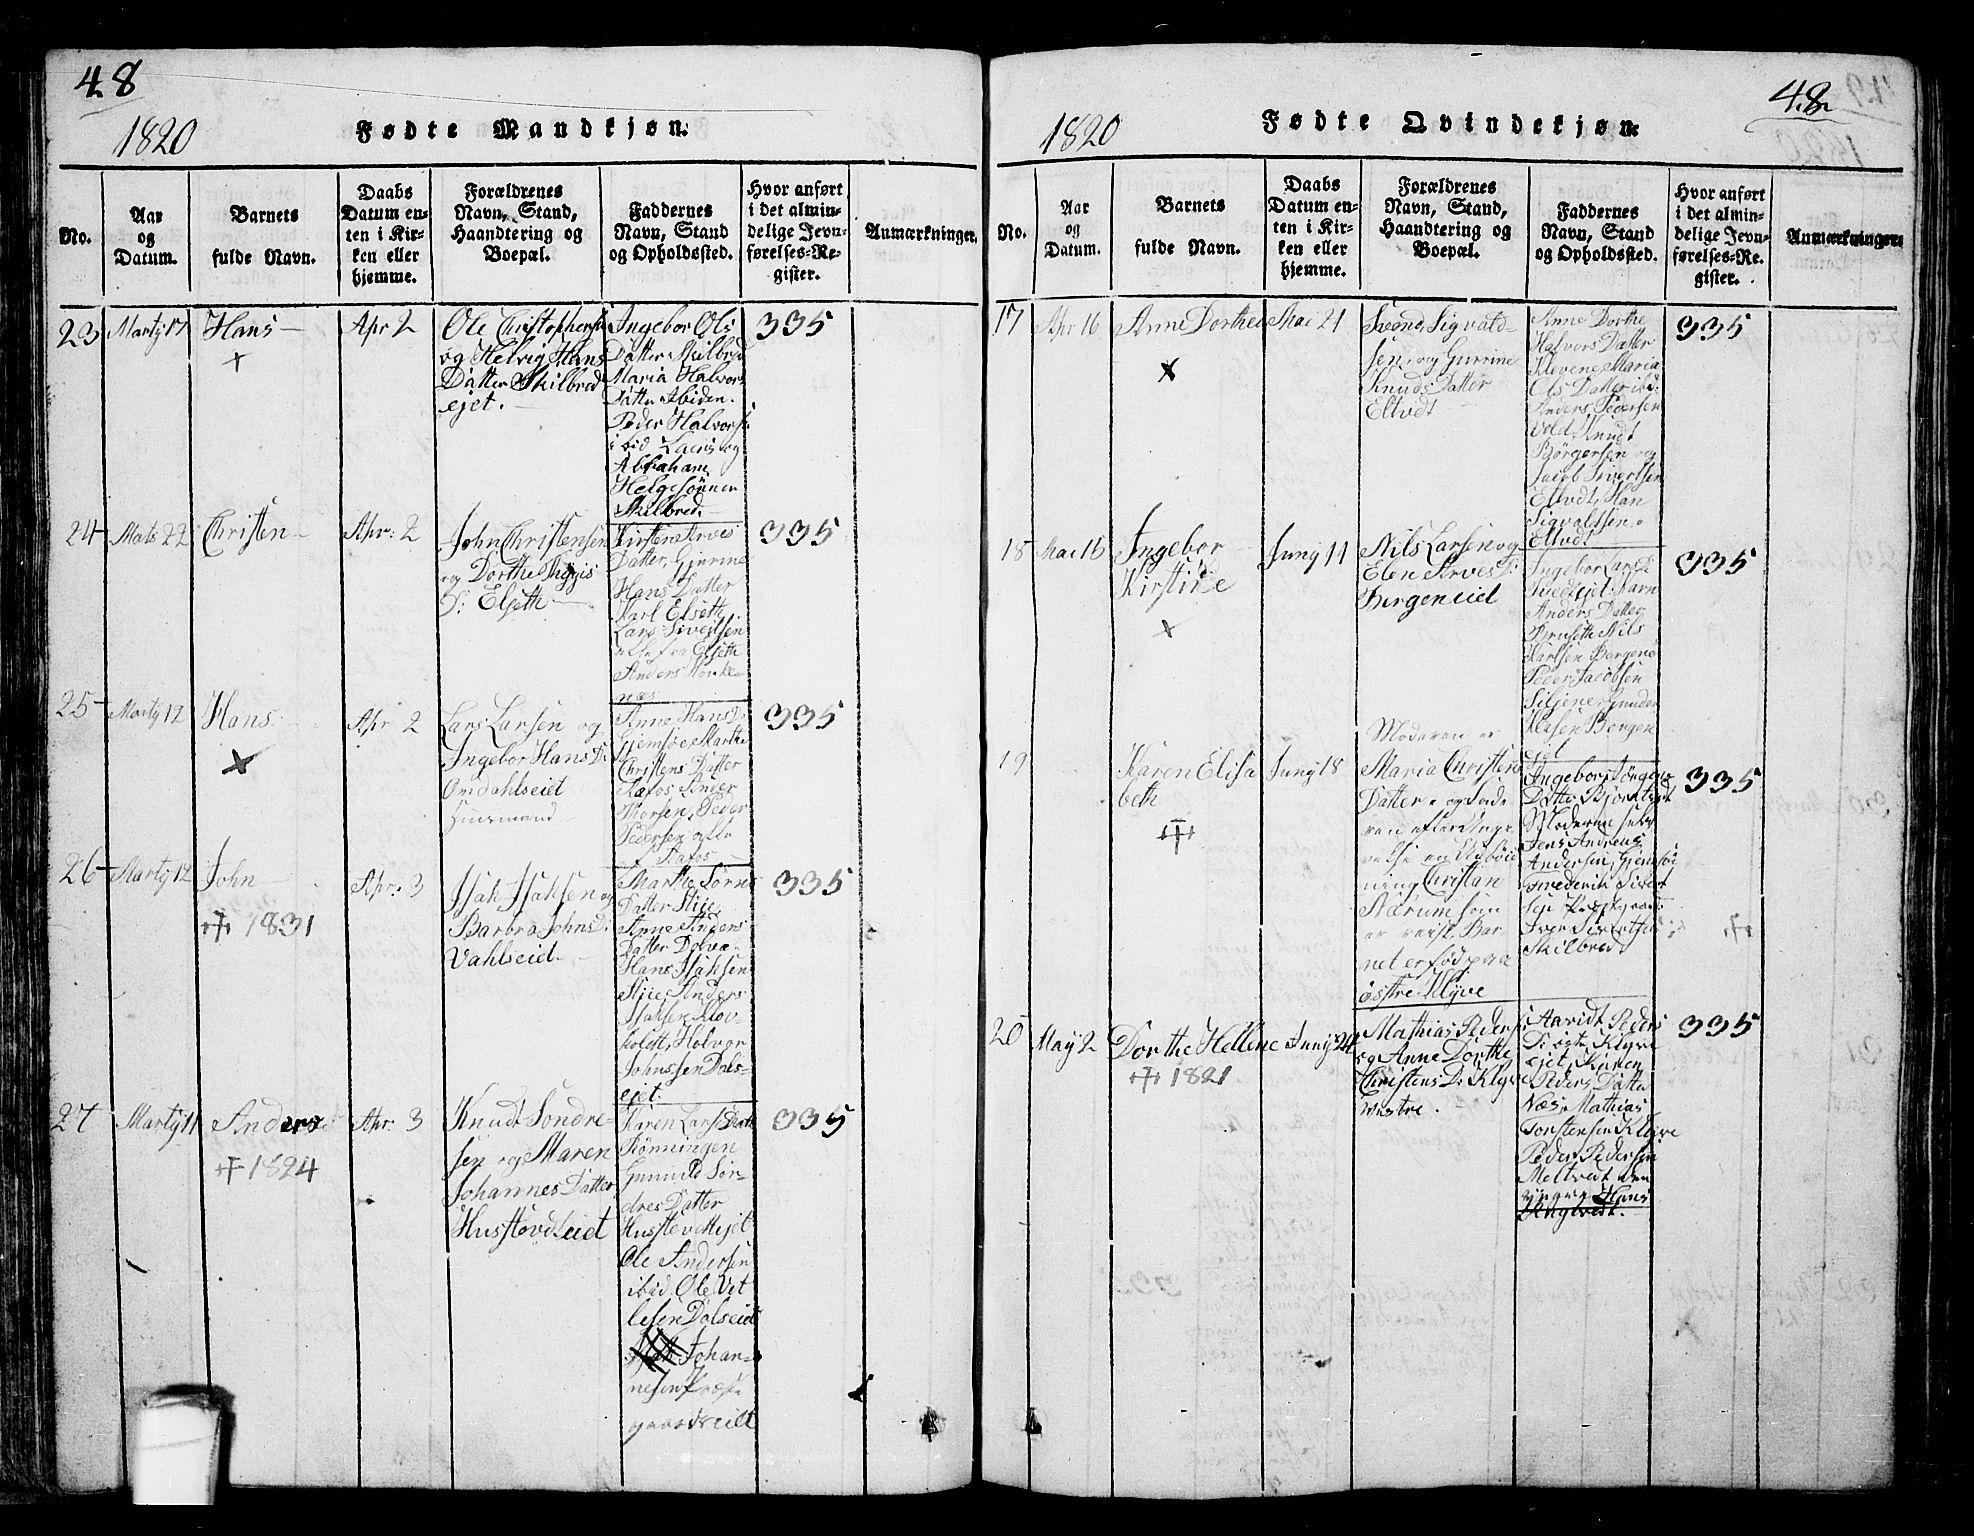 48
1820
Fødte Mandkjøn.
No.
Aar
og
Datum.
Barnets
fulde Navn.
Daabs
Datum en-
ten i Kir-
ken eller
hjemme.
Forældrenes
Navn, Stand,
Haandtering og
Boepæl.
Faddernes
Navn, Stand
og Opholdssted.
Hvor anført
i det almin-
delige Jevn-
førelses-Re-
gister.
Anmærkninger.
23
Marty 17
Hans
+
Apr 2
Ole Christophersen
og Helvig Hans
Datter Skilbred
ejet.
Ingebor Ols
Datter Skilbred
Maria Halvors
Datter Ibiden.
Peder Halvors
ibid Laers og
Abraham
Helgesønner
Skilbred.
335
24
Marts 22
Christen
Apr: 2
John Christensen
og Dorthe
D: Elseth
Kirsten Arves
Datter, Gjurine
Hans Datter
Karl Elseth
Lars Sivertsen
alle fra Elseth
Anders
næs
335
25
Marty 12
Hans
x
Apr 2
Lars Larsen og
Ingebor Hans D:
Omdahlseiet
Huusmand
Anne Hans D:
Gjemsøe Marthe
Christens Datter
Rafos Ander
Thorsen, Peder
Pedersen alle
Rafos
335
26
Marty 12
John
1831
Apr: 3
Isak Isaksen og
Barbra Johns D:
Vahlseid
Marthe Sørns
Datter Stiie
Anne Anders
Datter Dolva
Hans Isaksen
Stiie Anders
Isaksen Klov-
holdt, Holvor
Johnssen Dols-
ejet.
335
27
Marty 11
Anders
1824
Apr: 3
Knudt Sondre-
sen og Maren
Johannes Datter
Hustøvdseiet
Karen Lars Dat
Rønningen
Gunnild Søn-
dres Datter
Hustøvdtejet
Ole Andersen
ibid Ole Vet
lesen Dolseiet
Johan-
nesen Præste
gaardseiet
335
48
1820
Fødte Qvindekjøn.
No.
Aar
og
Datum.
Barnets
fulde Navn.
Daabs
Datum en-
ten i Kir-
ken eller
hjemme.
Forældrenes
Navn, Stand,
Haandtering og
Boepæl.
Faddernes
Navn, Stand
og Opholdssted.
Hvor anført
i det almin-
delige Jevn-
førelses-Re-
gister.
Anmærkninger.
17
Apr 16
Anne Dorthea
x
Mai 21
Svend Sigvald-
sen og Gurrine
Knuds Datter
Eltvedt
Anne Dorthe
Halvors Datter
Klevene Maria
Ols Datter ibd:
Anders Pedersen
Vold Knudt
Børgersen og
Jacob Sivertsen
Eltvdt, Han
Sigvaldsen
Eltvdt
335
18
Mai 16
Ingebor
Kirstine
x
Juny 11
Nils Larsen og
Elen Arves D:
Bergen eied
Ingebor Lars D
Tvedtejet Karn
Anders Datter
Bruseth Nils
Karlsen Bergene
Peder Jacobsen
Siljene
Klasen Bergen
ejet
335
19
Karen Elisa
beth
Juny 18
Moderen er
Maria Christens
Datter og Fade
ren efter Opgi
velse
ning Christian
Nærum som
er reist. Bar
net er fød paa
østre Klyve
Ingebor Jørgens
Datter Bjørntvedt
Moderen selv
Jens Andreas
Andersen, Gjemsøe
Frederik Sivert
sen Præstgaard
Iver Sivertsen
Skilbred
335
20
May 2
Dorthe Hellene
1821
Juny 24
Mathias Peders
og Anne Dorthe
Christens D: Klyve
vestre.
Aavidt Peders
D: østre Klyve
ejet, Karen
Peders Datter
Næs, Mathias
Torstensen Klyve
Peder Pedersen
Meltvedt den
yngre Hans
335